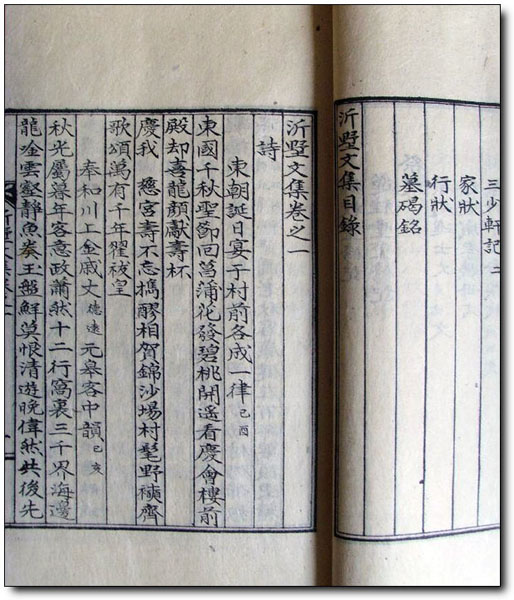 三少軒記 二
家狀
行狀
墓碣銘
沂墅文集目錄
沂墅文集卷之一
詩
東朝誕日宴于村前各成一律 己酉
東國千秋聖節回菖蒲花發碧桃開遥看慶會樓前
殿却喜龍顔獻壽杯
慶我 慈宮壽不忘擕醪相賀錦沙場村髦野穉齊
歌頌萬有千年翟祓皇
奉和川上金戚丈 德遠 元皐客中韻 己亥
秋光屬暮年客意政蕭然十二行窩裏三千界海邊
龍唫雲壑靜魚羮玉盤鮮莫恨清遊晚偉然共後先